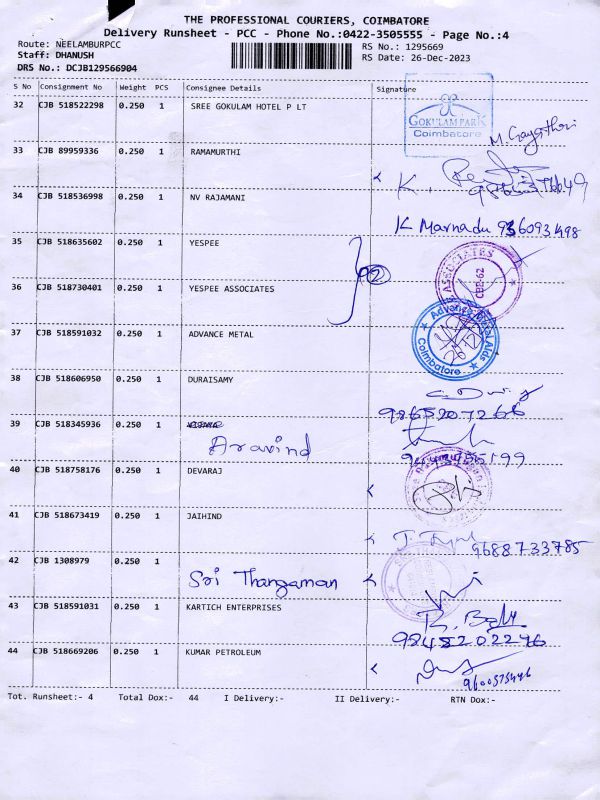 THE PROFESSIONAL COURIERS, COIMBATORE
Delivery Runsheet - PCC - Phone No.:0422-3505555 - Page No.:4
Route: NEELAMBURPCC
RS No.: 1295669
Staff: DHANUSH
RS Date: 26-Dec-2023
DRS No.: DCJB129566904
S No Consignment No Weight PCS Consignee Details Signature
32 CJB 518522298 0.250 1 SREE GOKULAM HOTEL P LT
GOKULAM PARK
Coimbatore
M. Gayathri
33 CJB 89959336 0.250 1 RAMAMURTHI
34 CJB 518536998 0.250 1 NV RAJAMANI
K Marnadu 9360931498
35 CJB 518635602 0.250 1 YESPEE
2
ASSOCIATES
CBE-62
36 CJB 518730401 0.250 1 YESPEE ASSOCIATES
37 CJB 518591032 0.250 1 ADVANCE METAL
Advance Metal Aids
Coimbatore
38 CJB 518606950 0.250 1 DURAISAMY
9865207266
39 CJB 518345936 0.250 1
Aravind
40 CJB 518758176 0.250 1 DEVARAJ
41 CJB 518673419 0.250 1 JAIHIND
9688733785
42 CJB 1308979 0.250 1
Sri Thangaman
43 CJB 518591031 0.250 1 KARTICH ENTERPRISES
44 CJB 518669206 0.250 1 KUMAR PETROLEUM
9600575446
Tot. Runsheet:- 4 Total Dox:- 44 I Delivery:- II Delivery:- RTN Dox:-